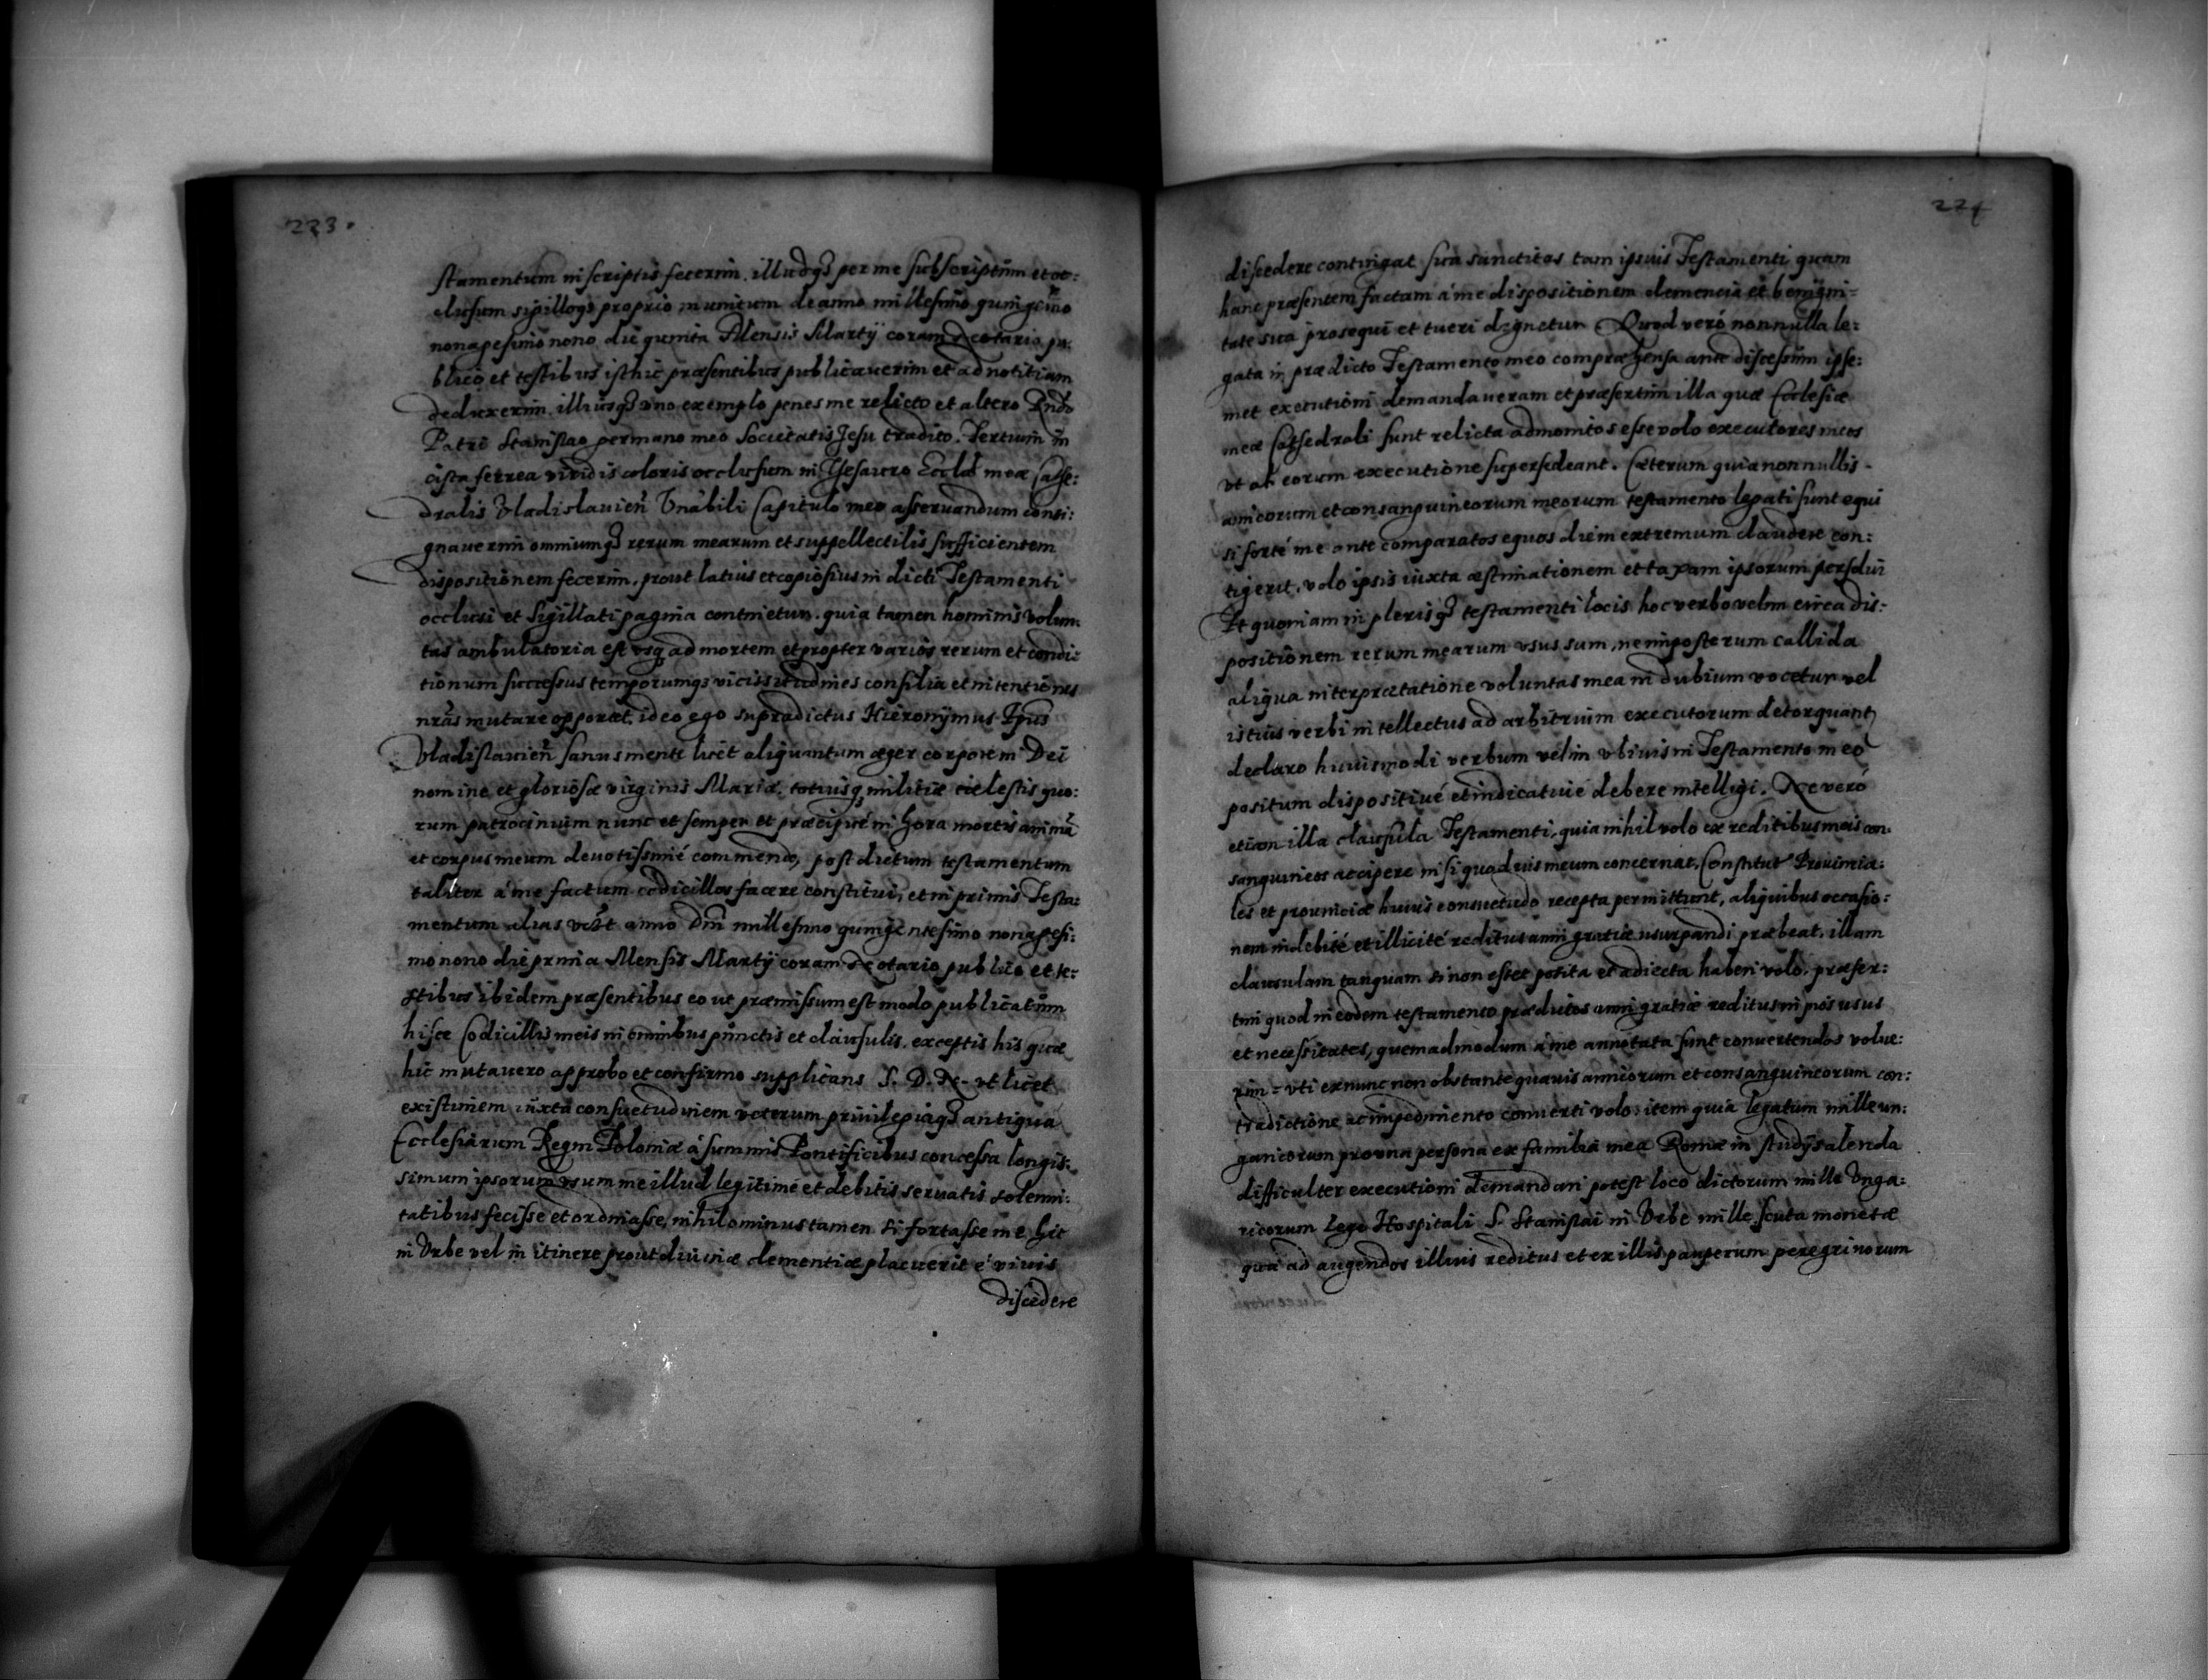 223.
stamentum in scriptis fecerim, illudq3 per me subscriptum et oc:
clusum sigilloq3 proprio munitum de anno millesimo quingēmo
nonagesimo nono die quinta Mensis Martÿ coram Notario pu:
blico et testibus isthic præsentibus publicauerim et ad notitiam
deduxerim, illiusq3 vno exemplo penes me relicto et altero Rndo
Patri Stanislao germano meo Societatis Jesu tradito. Tertium in
cista ferrea viridis coloris occlusum in Thesauro Eccłæ meæ Cathe:
dralis Vladislauień Vnabili Capitulo meo asseruandum consi:
gnauerim omniumq3 rerum mearum et suppellectilis sufficientem
dispositionem fecerim, prout latius et copiosius in dicti Testamenti
occlusi et Sigillati pagina continetur. quia tamen hominis volun:
tas ambulatoria est vsq3 ad mortem et propter varios rerum et condi:
tionum successus temporumq3 vicissitudines consilia et intentiones
nrās mutare opportet, ideo ego supradictus Hieronymus Epūs
Vladislauień sanus mente licet aliquantum æger corpore in Dei
nomine et gloriosæ virginis Mariæ, totiusq3 militiæ cælestis quo:
rum patrocinium nunc et semper et præcipué in hora mortis animā
et corpus meum deuotissimé commendo, post dictum testamentum
taliter á me factum codicillos facere constitui, et in primis Testa:
mentum alias vdzt anno Dnī millesimo quingentesimo nonagesi:
mo nono die prima Mensis Martÿ coram Notario publico et te:
stibus ibidem præsentibus eo ut præmissum est modo publicatum
hisce Codicillis meis in omnibus punctis et clausulis, exceptis his quæ
hic mutauero approbo et confirmo supplicans S. D. N. vt licet
existimem iuxta consuetudinem veterum priuilegiaq3 antiqua
Ecclesiarum Regni Poloniæ á summis Pontificibus concessa longis:
simum ipsorum vsum me illud legitimé et debitis seruatis solenni:
tatibus fecisse et ordinasse, nihilominus tamen si fortasse me hic
in Vrbe vel in itinere prout diuinæ clementiæ placuerit é viuis
discedere
224
discedere contingat sua sanctitas tam ipsius Testamenti quam
hanc præsentem factam á me dispositionem clemencia et benigni=
tate sua prosequi et tueri dignetur Quod veró nonnulla le:
gata in prædicto Testamento meo compræhensa ante discessum ipse:
met executioni demandaueram et præsertim illa quæ Ecclesiæ
meæ Cathedrali sunt relicta admonitos esse volo executores meos
vt ab eorum executione supersedeant. Cæterum quia nonnullis
amicorum et consanguineorum meorum testamento legati sunt equi
si forté me ante comparatos equos diem extremum claudere con:
tigerit, volo ipsis iuxta æstimationem et taxam ipsorum persolui
Et quoniam in plerisq3 testamenti locis hoc verbo velim circa dis:
positionem rerum mearum vsus sum, ne inposterum callida
aliqua interprætatione voluntas mea in dubium vocetur vel
istius verbi intellectus ad arbitrium executorum detorquant
declaro huiusmodi verbum velim vbiuis in Testamento meo
positum dispositiué et indicatiué debere intelligi. Ne veró
etiam illa clausula Testamenti, quia nihil volo ex reditibus meis con:
sanguineos accipere nisi quod vis meum concernat, Constitut Prouincia:
les et prouinciæ huius consuetudo recepta permittunt, aliquibus occasio:
nem indebité et illicité reditus anni gratiæ usurpandi præbeat, illam
clausulam tanquam si non esset posita et adiecta haberi volo, præser:
tim quod in eodem testamento prædictos anni gratiæ reditus in pios usus
et necessitates, quemadmodum á me annotata sunt conuertendos volue:
rim = vti ex nunc non obstante quauis amicorum et consanguineorum con:
tradictione ac impedimento conuerti volo, item quia legatum mille un:
garicorum pro vna persona ex familia mea Romæ in studÿs alenda
difficulter executioni demandari potest loco dictorum mille Vnga:
ricorum lego Hospitali S. Stanislai in Vrbe mille scuta monetæ
quæ ad augendos illius reditus et ex illis pauperum peregrinorum